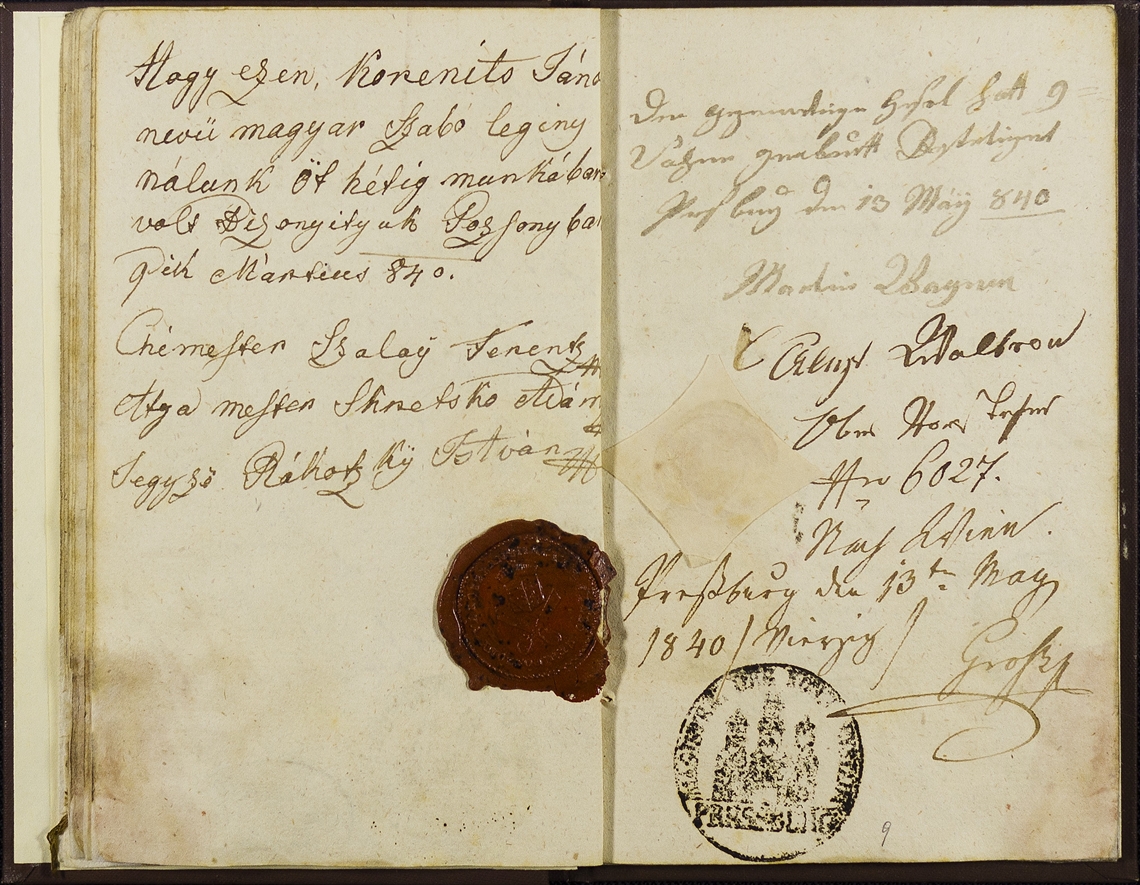 Hogy ezen, Korenits Jáno
nevü magyar Szabó legény
nálunk öt hétig munkában
volt Bizonyityuk Posonyban
9dik Mártius 840.
Chémester Szalaÿ Ferentz
Atya mester Skretskó
Jegyző Rákotzkÿ István
Der gegenwertige Gesel hatt 9
Wochen gearbeitt
Presburg den 13 Maÿ 840
Martin Wagner
Ober Vor
No 6027.
Nach Wien.
Preßburg den 13ten May
1840 / Vierzig /
PRESSBURG
9